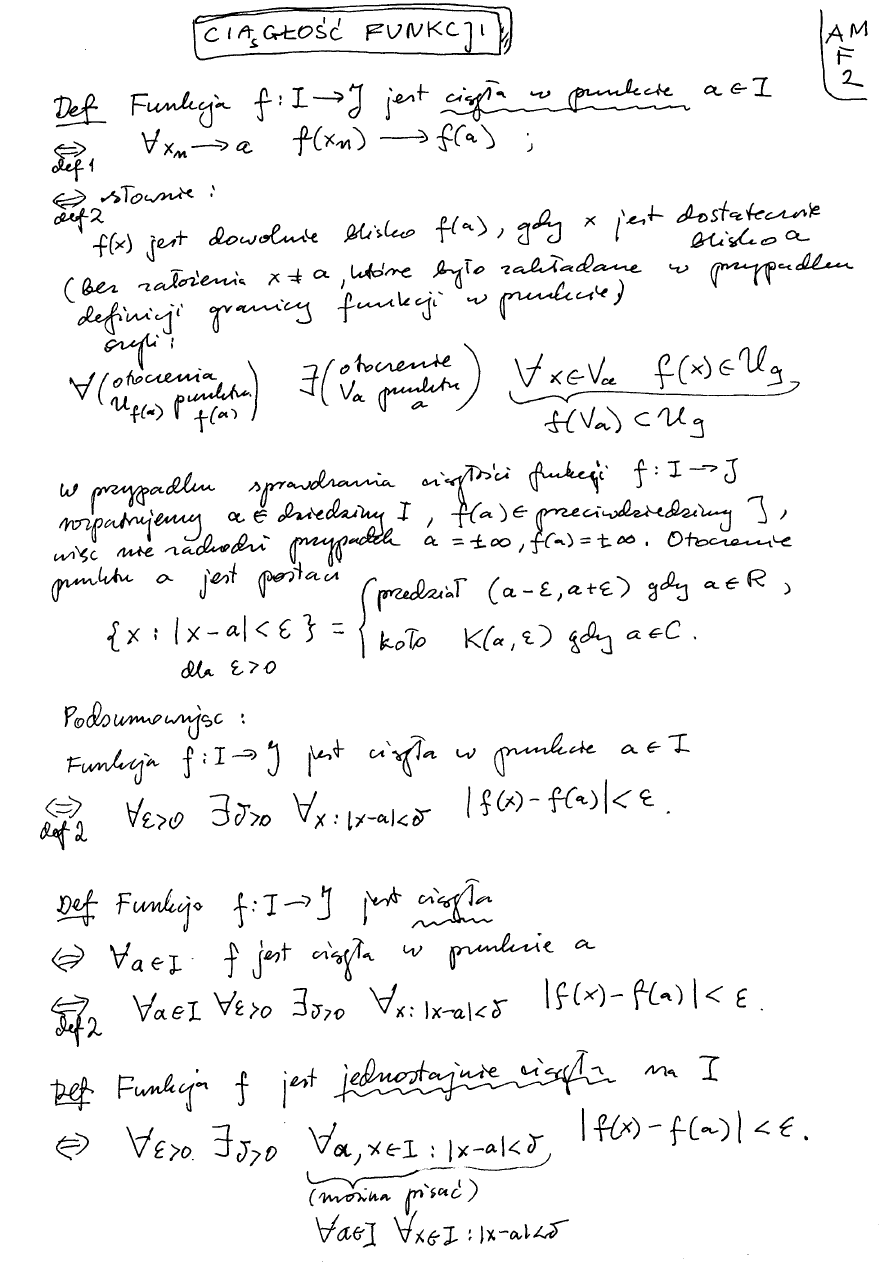 CIĄGŁOŚĆ FUNKCJI
AM
F
2
Def Funkcja f: I → J jest ciągła w punkcie a ∈ I
⇔ def 1 ∀ xₙ → a f(xₙ) → f(a) ;
⇔ def 2 słownie :
f(x) jest dowolnie blisko f(a), gdy x jest dostatecznie
blisko a
(bez założenia x ≠ a, które było zakładane w przypadku
definicji granicy funkcji w punkcie)
czyli :
∀ (otoczenia U_f(a) punktu f(a)) ∃ (otoczenie Va punktu a) ∀ x∈Va f(x) ∈ U_g,
f(Va) ⊂ U_g
W przypadku sprawdzania ciągłości funkcji f: I → J
rozpatrujemy a ∈ dziedziny I, f(a) ∈ przeciwdziedziny J,
więc nie zachodzi przypadek a = ±∞, f(a) = ±∞. Otoczenie
punktu a jest postaci
{x : |x-a| < ε} = { przedział (a-ε, a+ε) gdy a ∈ R,
koło K(a, ε) gdy a ∈ C.
dla ε>0
Podsumowując :
Funkcja f: I → J jest ciągła w punkcie a ∈ I
⇔ def 2 ∀ε>0 ∃δ>0 ∀x : |x-a|<δ |f(x) - f(a)| < ε.
Def Funkcja f: I → J jest ciągła
⇔ ∀a∈I f jest ciągła w punkcie a
⇔ def 2 ∀a∈I ∀ε>0 ∃δ>0 ∀x : |x-a|<δ |f(x) - f(a)| < ε.
Def Funkcja f jest jednostajnie ciągła na I
⇔ ∀ε>0 ∃δ>0 ∀a, x∈I : |x-a|<δ, |f(x) - f(a)| < ε.
(można pisać)
∀a∈I ∀x∈I : |x-a|<δ